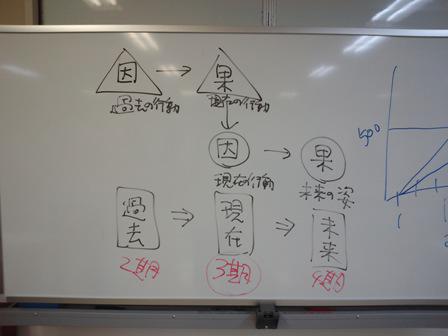 因 → 果
過去の行動 現在の行動
↓
因 → 果
現在の行動 未来の姿
過去 ⇒ 現在 ⇒ 未来
2期 3期 4期
500
1